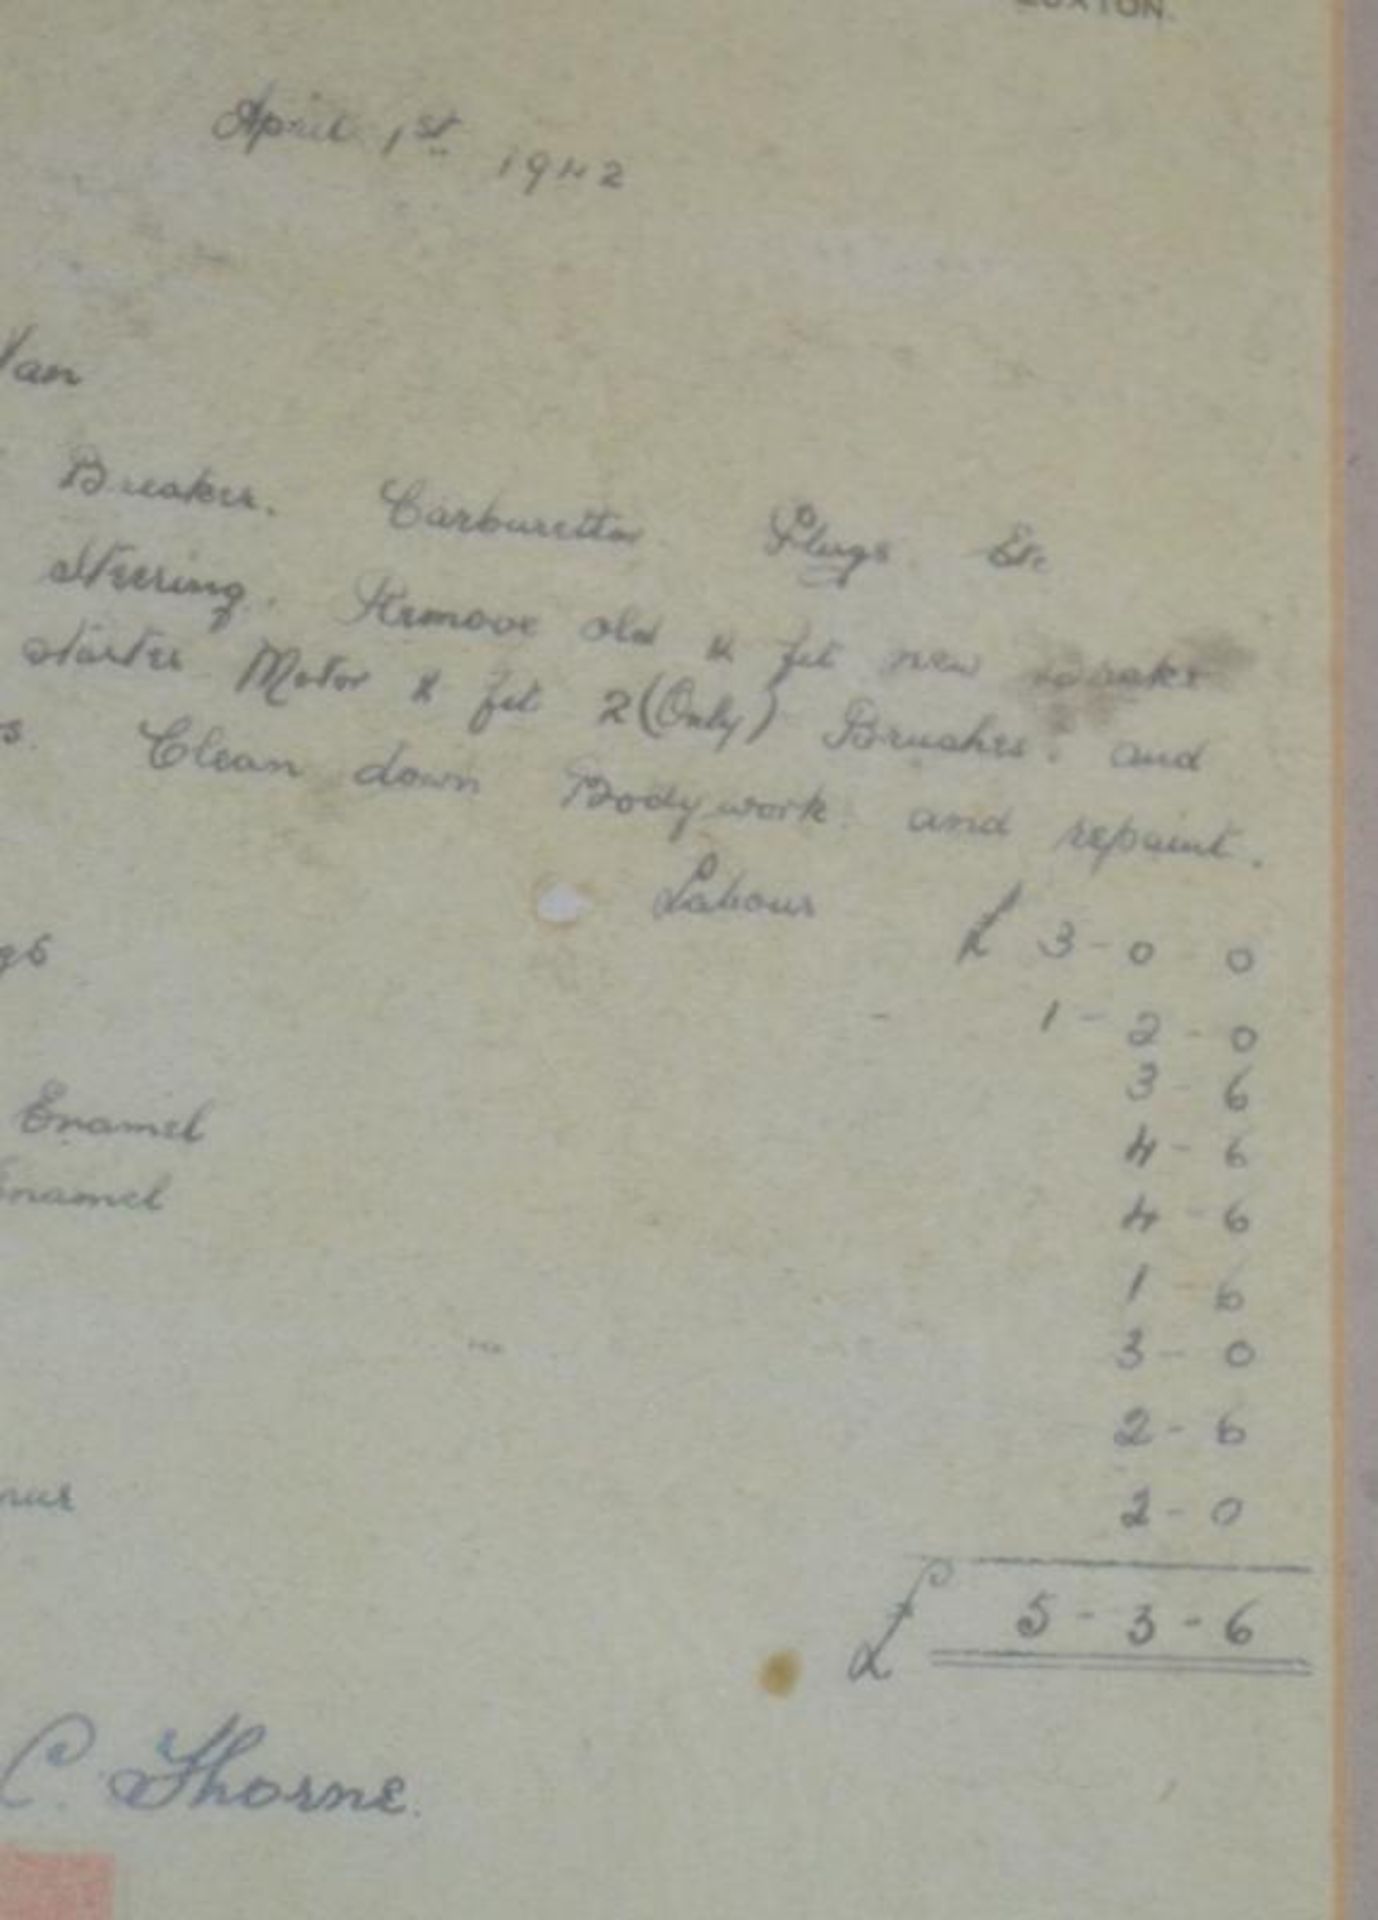 April 1st 1942
Van
Breaker. Carburettor Plugs. Etc
Steering. Remove old & fit new
Starter Motor & fit 2 (Only) Brushes. and
s. Clean down Bodywork. and repaint.
Labour £ 3-0-0
gs
1-2-0
3-6
Enamel 4-6
Enamel 4-6
1-6
3-0
2-6
2-0
£ 5-3-6
C. Thorne.